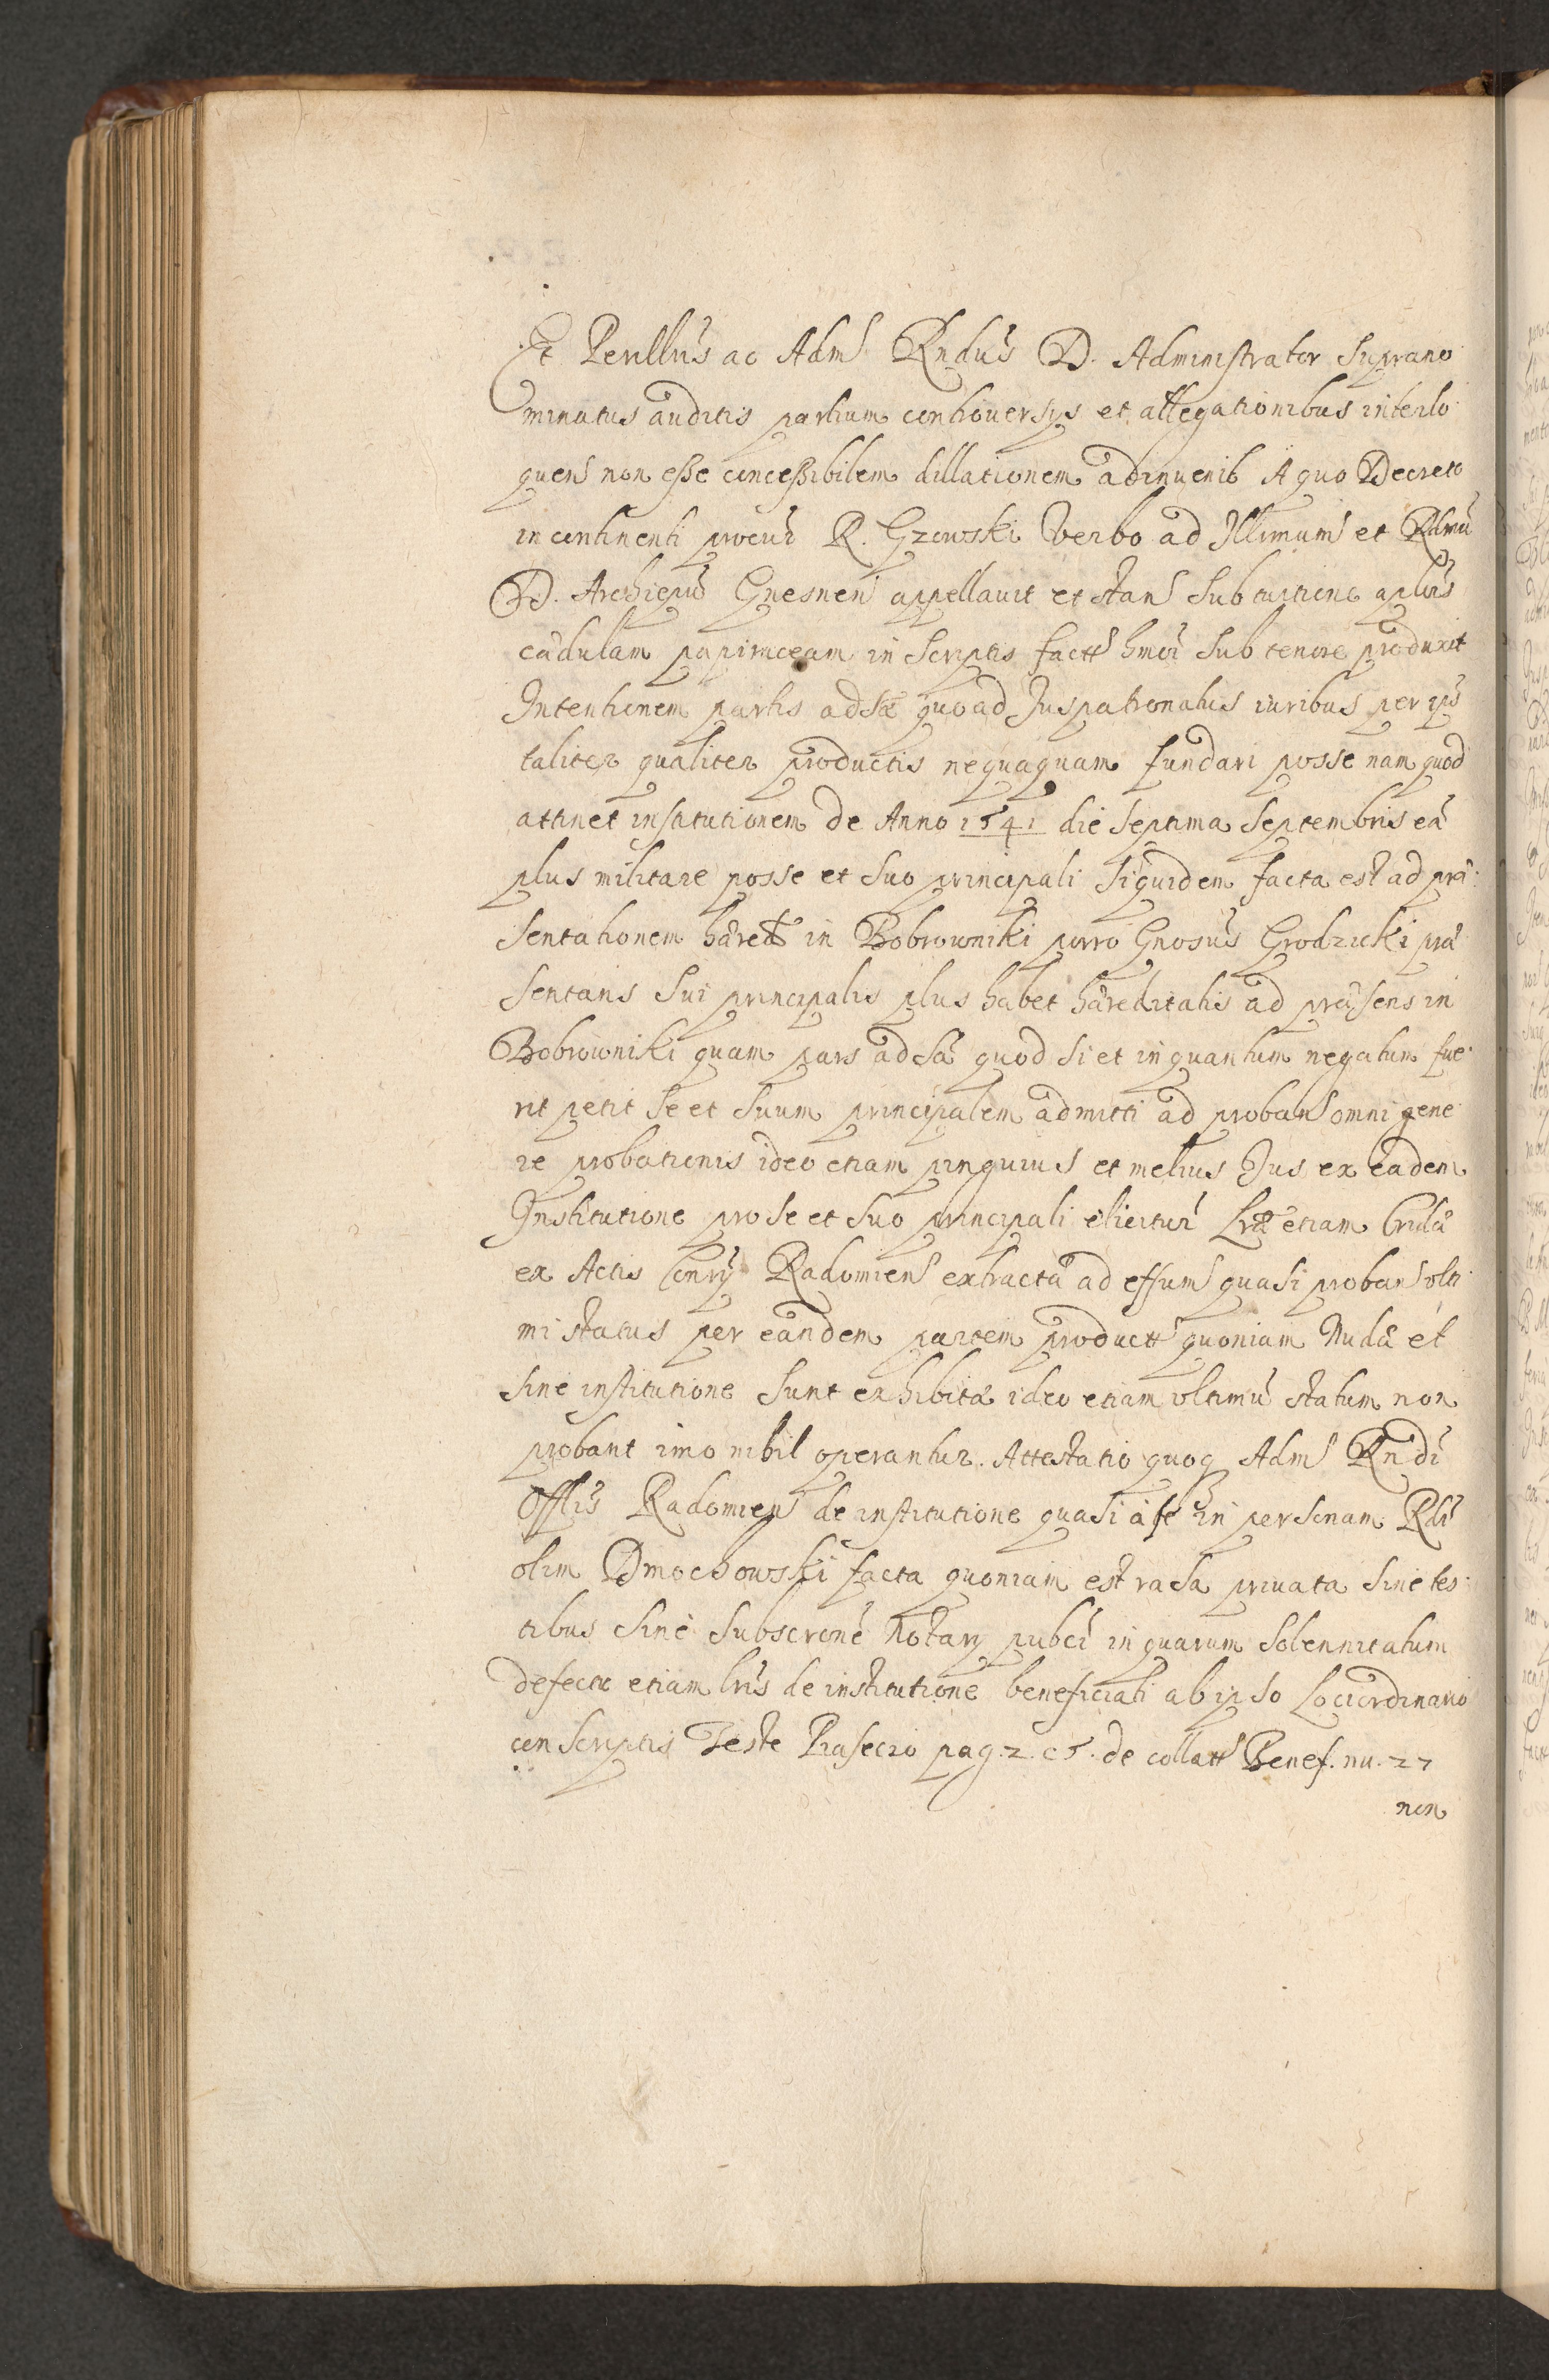 Et Perillus̃ ac Adm̃ Rndus̃ D. Administrator Suprano
minatus auditis partium controuersys et allegationibus interlo
quens non esse concessibilem dillationem adinuenit A quo Decreto
in continenti procur̃ R. Gzowski Verbo ad Illimum̃ et Rdmũ
D. Archiepũ Gnesnen̄ appellauit et stans Sub tuitione aplis̃
cædulam papiraceam in Scriptis factt̃ hmoi Sub tenore produxit
Intentionem partis adsæ quo ad Juspatronatus iuribus per ips̃
taliter qualiter productis nequaquam fundari posse nam quod
attinet institutionem de Anno 1541 die Septima Septembris eã
plus militare posse et Suo principali siquidem facta est ad præ
sentationem hæred̃ in Bobrowniki porro Gnosus̃ Grodzicki præ
sentans Sui principalis plus habet hæreditatis ad præsens in
Bobrowniki quam pars adsa quod si et in quantum negatum fue
rit petit Se et Suum principalem admitti ad proban̄ omni gene
re probationis ideo etiam pinguius et melius Jus ex eadem
Institutione pro se et Suo principali elicitur̃ Lræ etiam Cridæ
ex Actis Consrij Radomien̄ extractæ ad effum̃ quasi proban̄ olti
mi status per eandem partem productt̃ quoniam Nudæ et
sine institutione Sunt exhibitæ ideo etiam vltimũ statum non
probant imo nihil operantur. Attestatio quoq Adm̃ Rndi
Offlis̃ Radomien̄ de institutione quasi a se in personam Rdi
olim Dmochowski facta quoniam est rasa priuata sine tes
tibus Sine Subscrone Notary pubci in quarum Solennitatum
defectu etiam lris̃ de institutione beneficiali ab ipso Loci ordinario
conscriptis Teste Piasecio pag. 2. c 5. de collatt̃ Benef. nu. 27
non